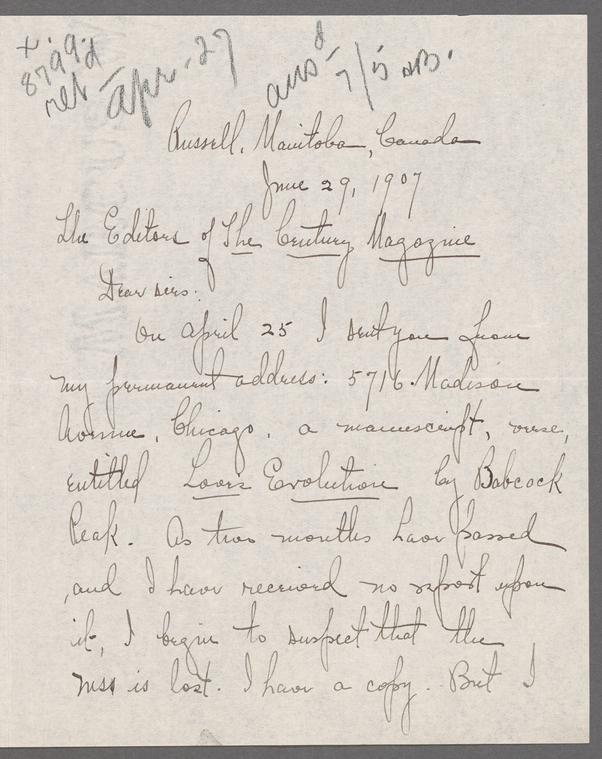 x. 8799.d
ret Apr. 27
ansd 7/5 AB.
Russell, Manitoba, Canada
June 29, 1907
The Editors of The Century Magazine
Dear sirs:
On April 25 I sent you from
my permanent address: 5716 Madison
Avenue, Chicago, a manuscript, verse,
entitled Love's Evolution by Babcock
Peak. As two months have passed
and I have received no report upon
it, I begin to suspect that the
mss is lost. I have a copy. But I